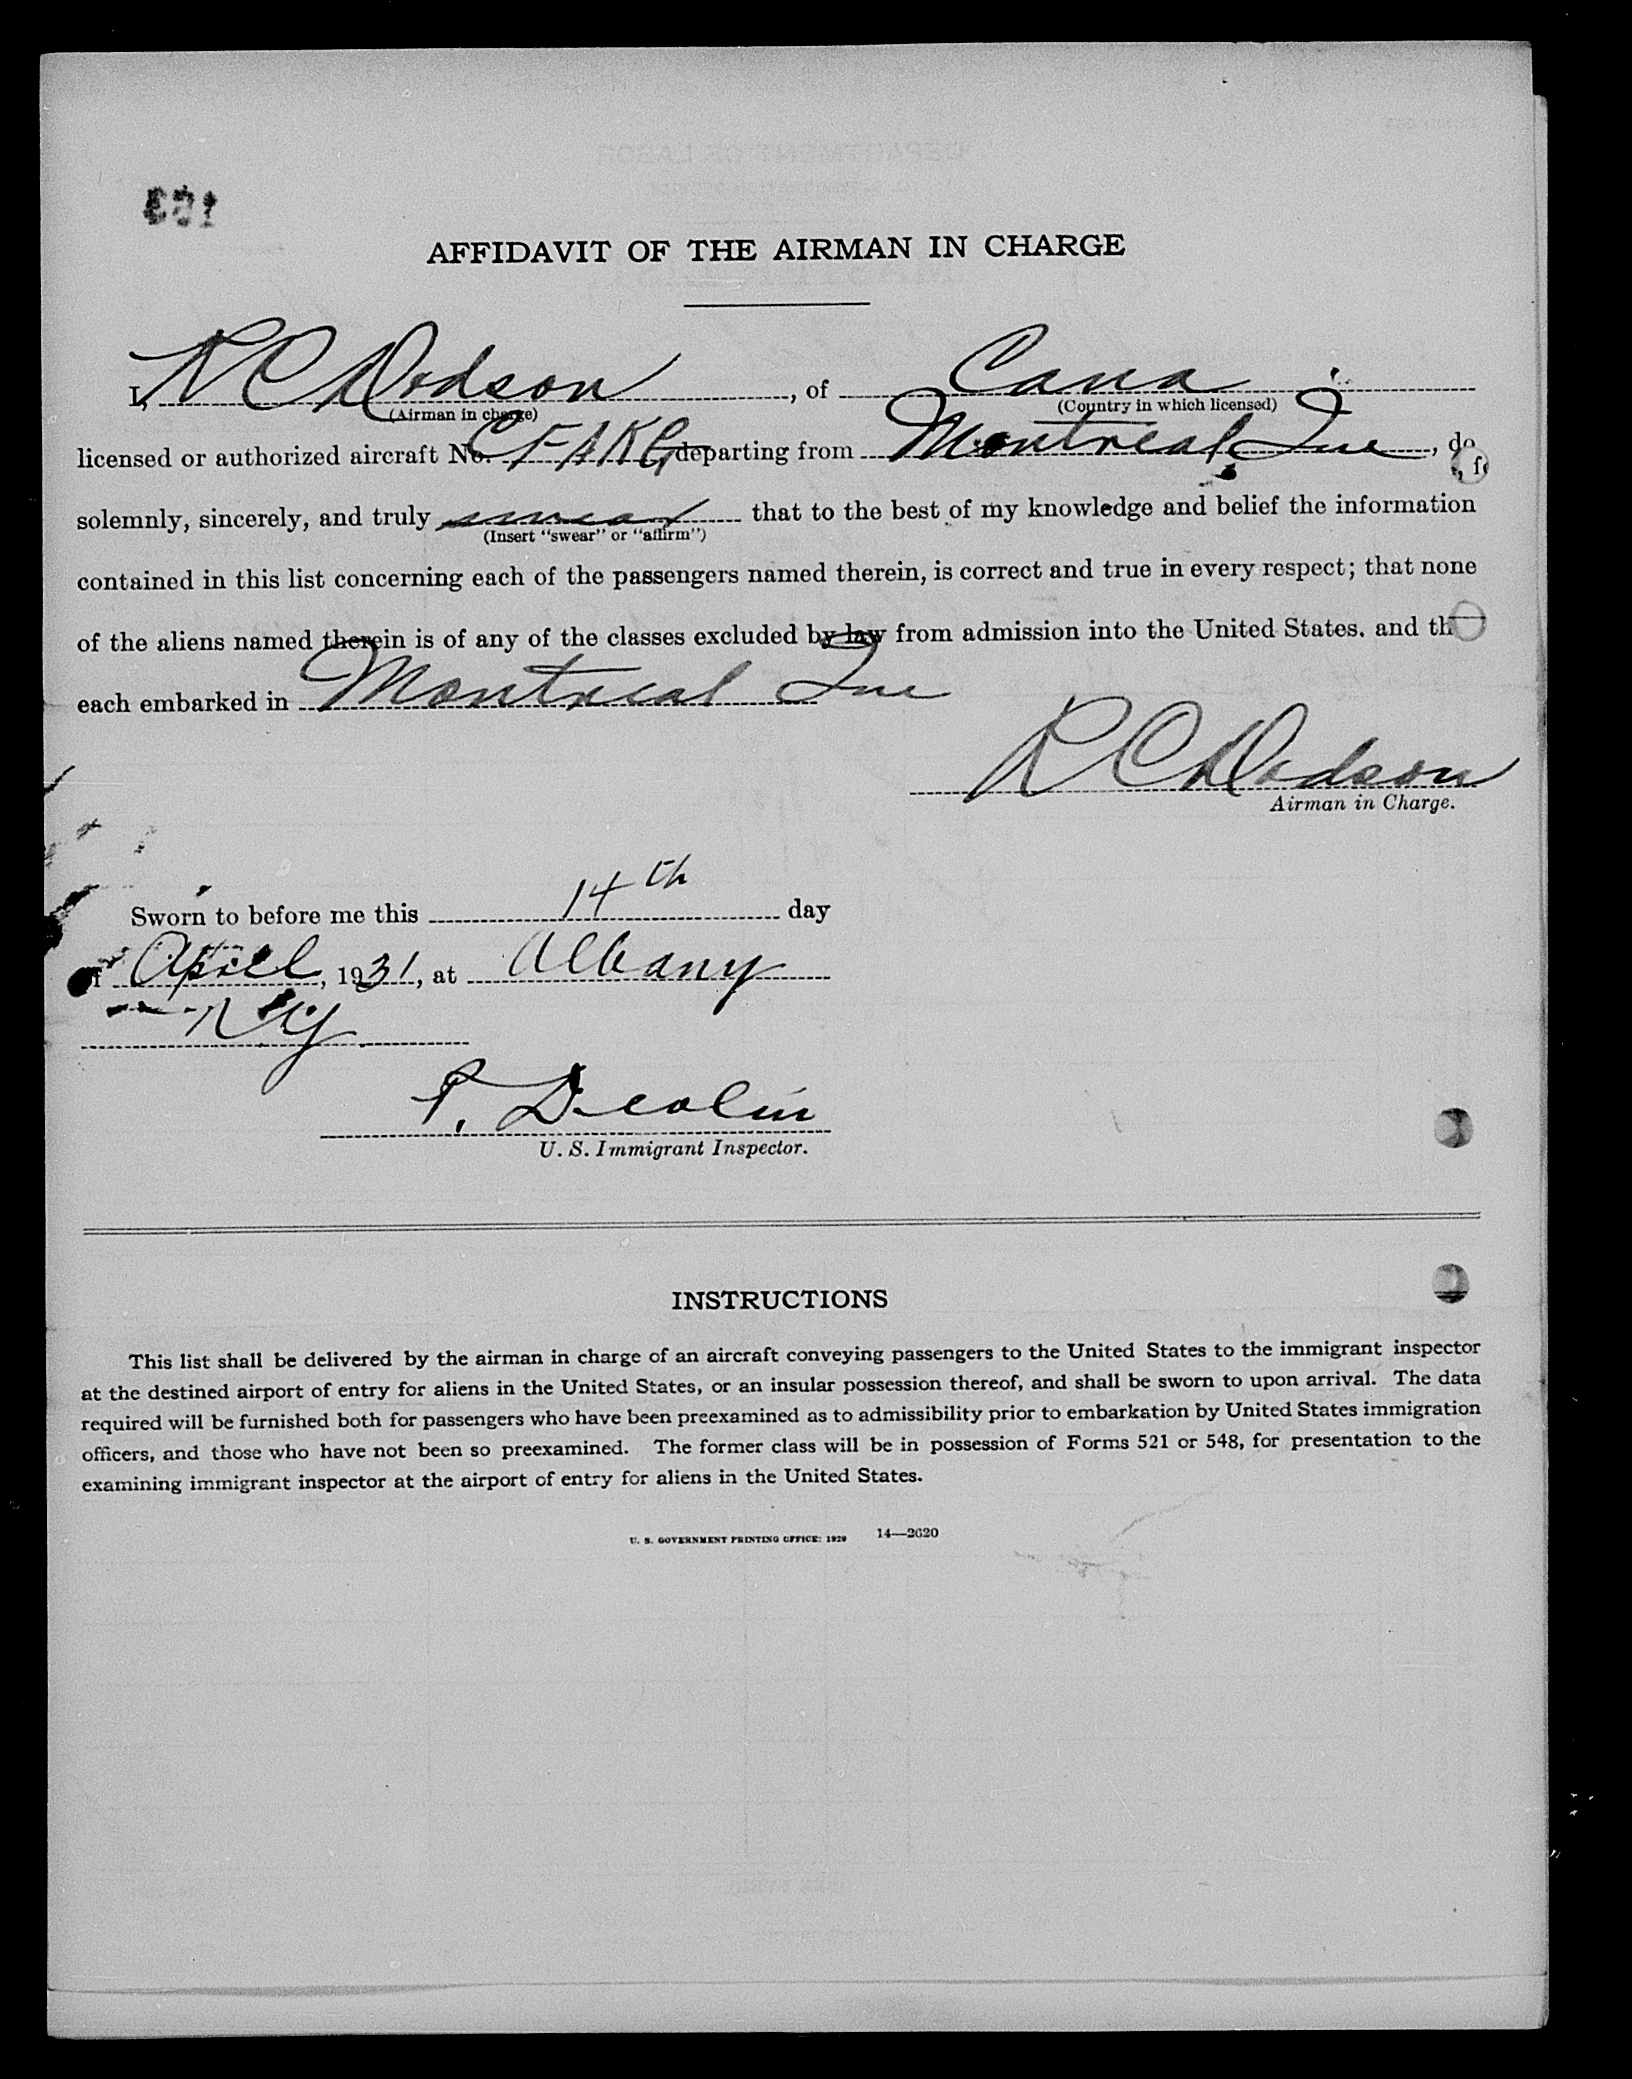 153
AFFIDAVIT OF THE AIRMAN IN CHARGE
I, R C Dodson, of Cana
(Airman in charge) (Country in which licensed)
licensed or authorized aircraft No. CFAKG departing from Montreal, Que, do
solemnly, sincerely, and truly swear that to the best of my knowledge and belief the information
(Insert "swear" or "affirm")
contained in this list concerning each of the passengers named therein, is correct and true in every respect; that none
of the aliens named therein is of any of the classes excluded by law from admission into the United States. and th
each embarked in Montreal Que
R C Dodson
Airman in Charge.
Sworn to before me this 14th day
of April, 1931, at Albany
N Y
U. S. Immigrant Inspector.
INSTRUCTIONS
This list shall be delivered by the airman in charge of an aircraft conveying passengers to the United States to the immigrant inspector
at the destined airport of entry for aliens in the United States, or an insular possession thereof, and shall be sworn to upon arrival. The data
required will be furnished both for passengers who have been preexamined as to admissibility prior to embarkation by United States immigration
officers, and those who have not been so preexamined. The former class will be in possession of Forms 521 or 548, for presentation to the
examining immigrant inspector at the airport of entry for aliens in the United States.
U. S. GOVERNMENT PRINTING OFFICE: 1929 14—2620